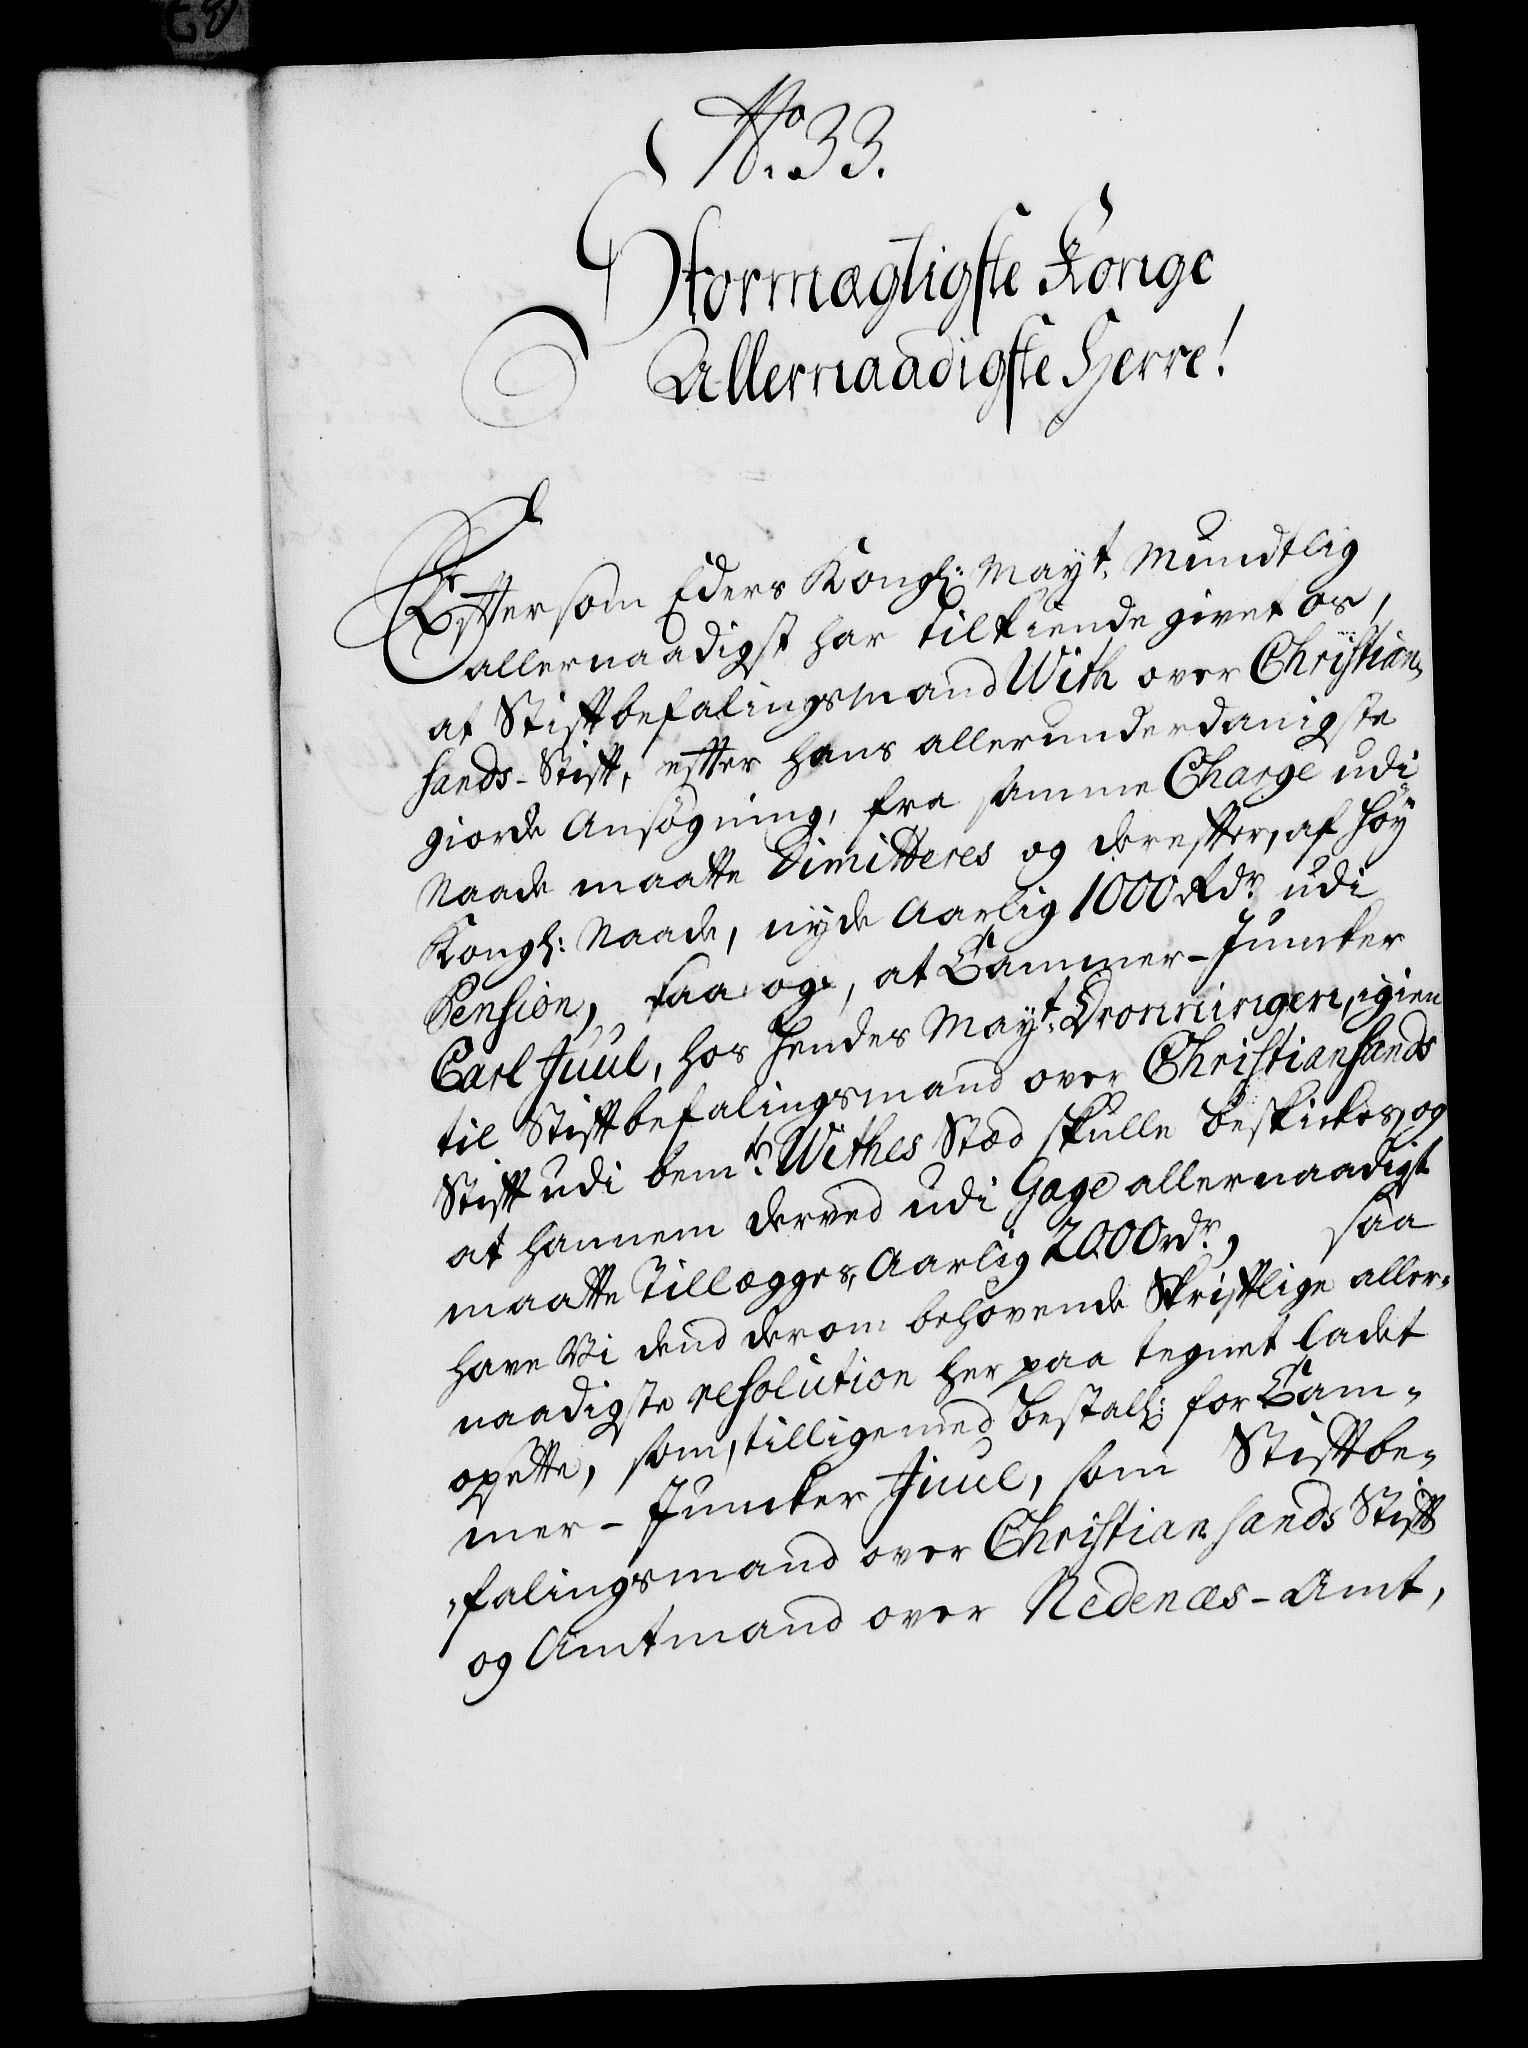 No. 33.
Stormægtigste Konge
Allernaadigste Herre!
Eftersom Eders Kongl: Mayt. Mundtlig
allernaadigst har tilkiende givet os,
at Stiftbefalingsmand With over Christian-
sands-Stift, efter hans allerunderdanigste
giorde Ansøgning, fra samme Charge udi
Naade maatte Dimitteres og derefter, af høy
Kongl: Naade, nyde Aarlig 1000 Rdr. udi
Pension, saa og, at Cammer-Juncker
Carl Juul, hos Hendes Mayt. Dronningen, igien
til Stiftbefalingsmand over Christiansands
Stift udi bemte. Withes Stæd skulle beskickes, og
at hannem derved udi Gage allernaadigst
maatte Tillægges, Aarlig 2000 rdr., saa
have Vi dend derom behøvende Skriftlige aller-
naadigste resolution her paa tegnet ladet
opsette, som, tilligemed bestall: for Cam-
mer-Juncker Juul, som Stiftbe-
falingsmand over Christiansands Stift
og Amtmand over Nedenæs-Amt,